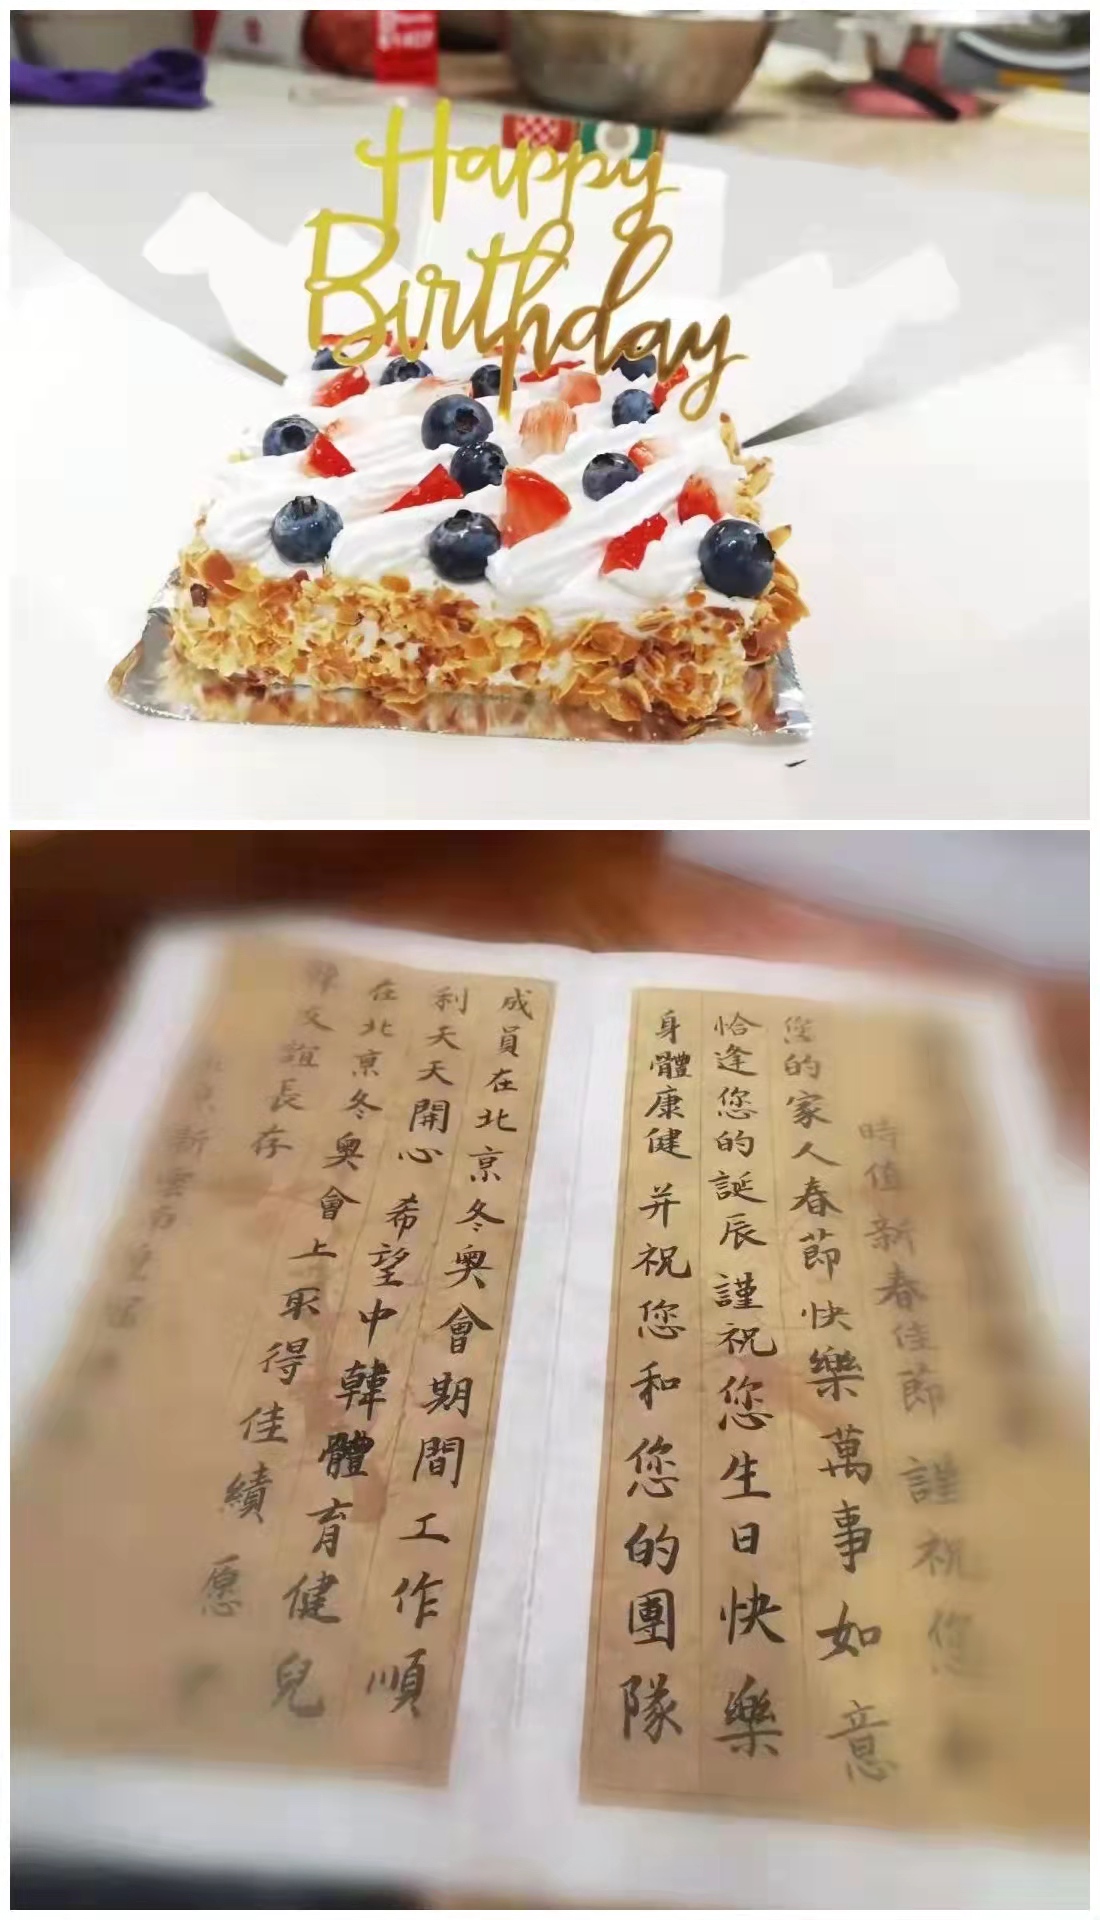 Happy
Birthday
時值新春佳節 謹祝您
您的家人春節快樂萬事如意
恰逢您的誕辰 謹祝您生日快樂
身體康健 并祝您和您的團隊
成員在北京冬奧會期間工作順
利天天開心 希望中韓體育健兒
在北京冬奧會上取得佳績 愿
韓友誼長存
京新雲南皇冠